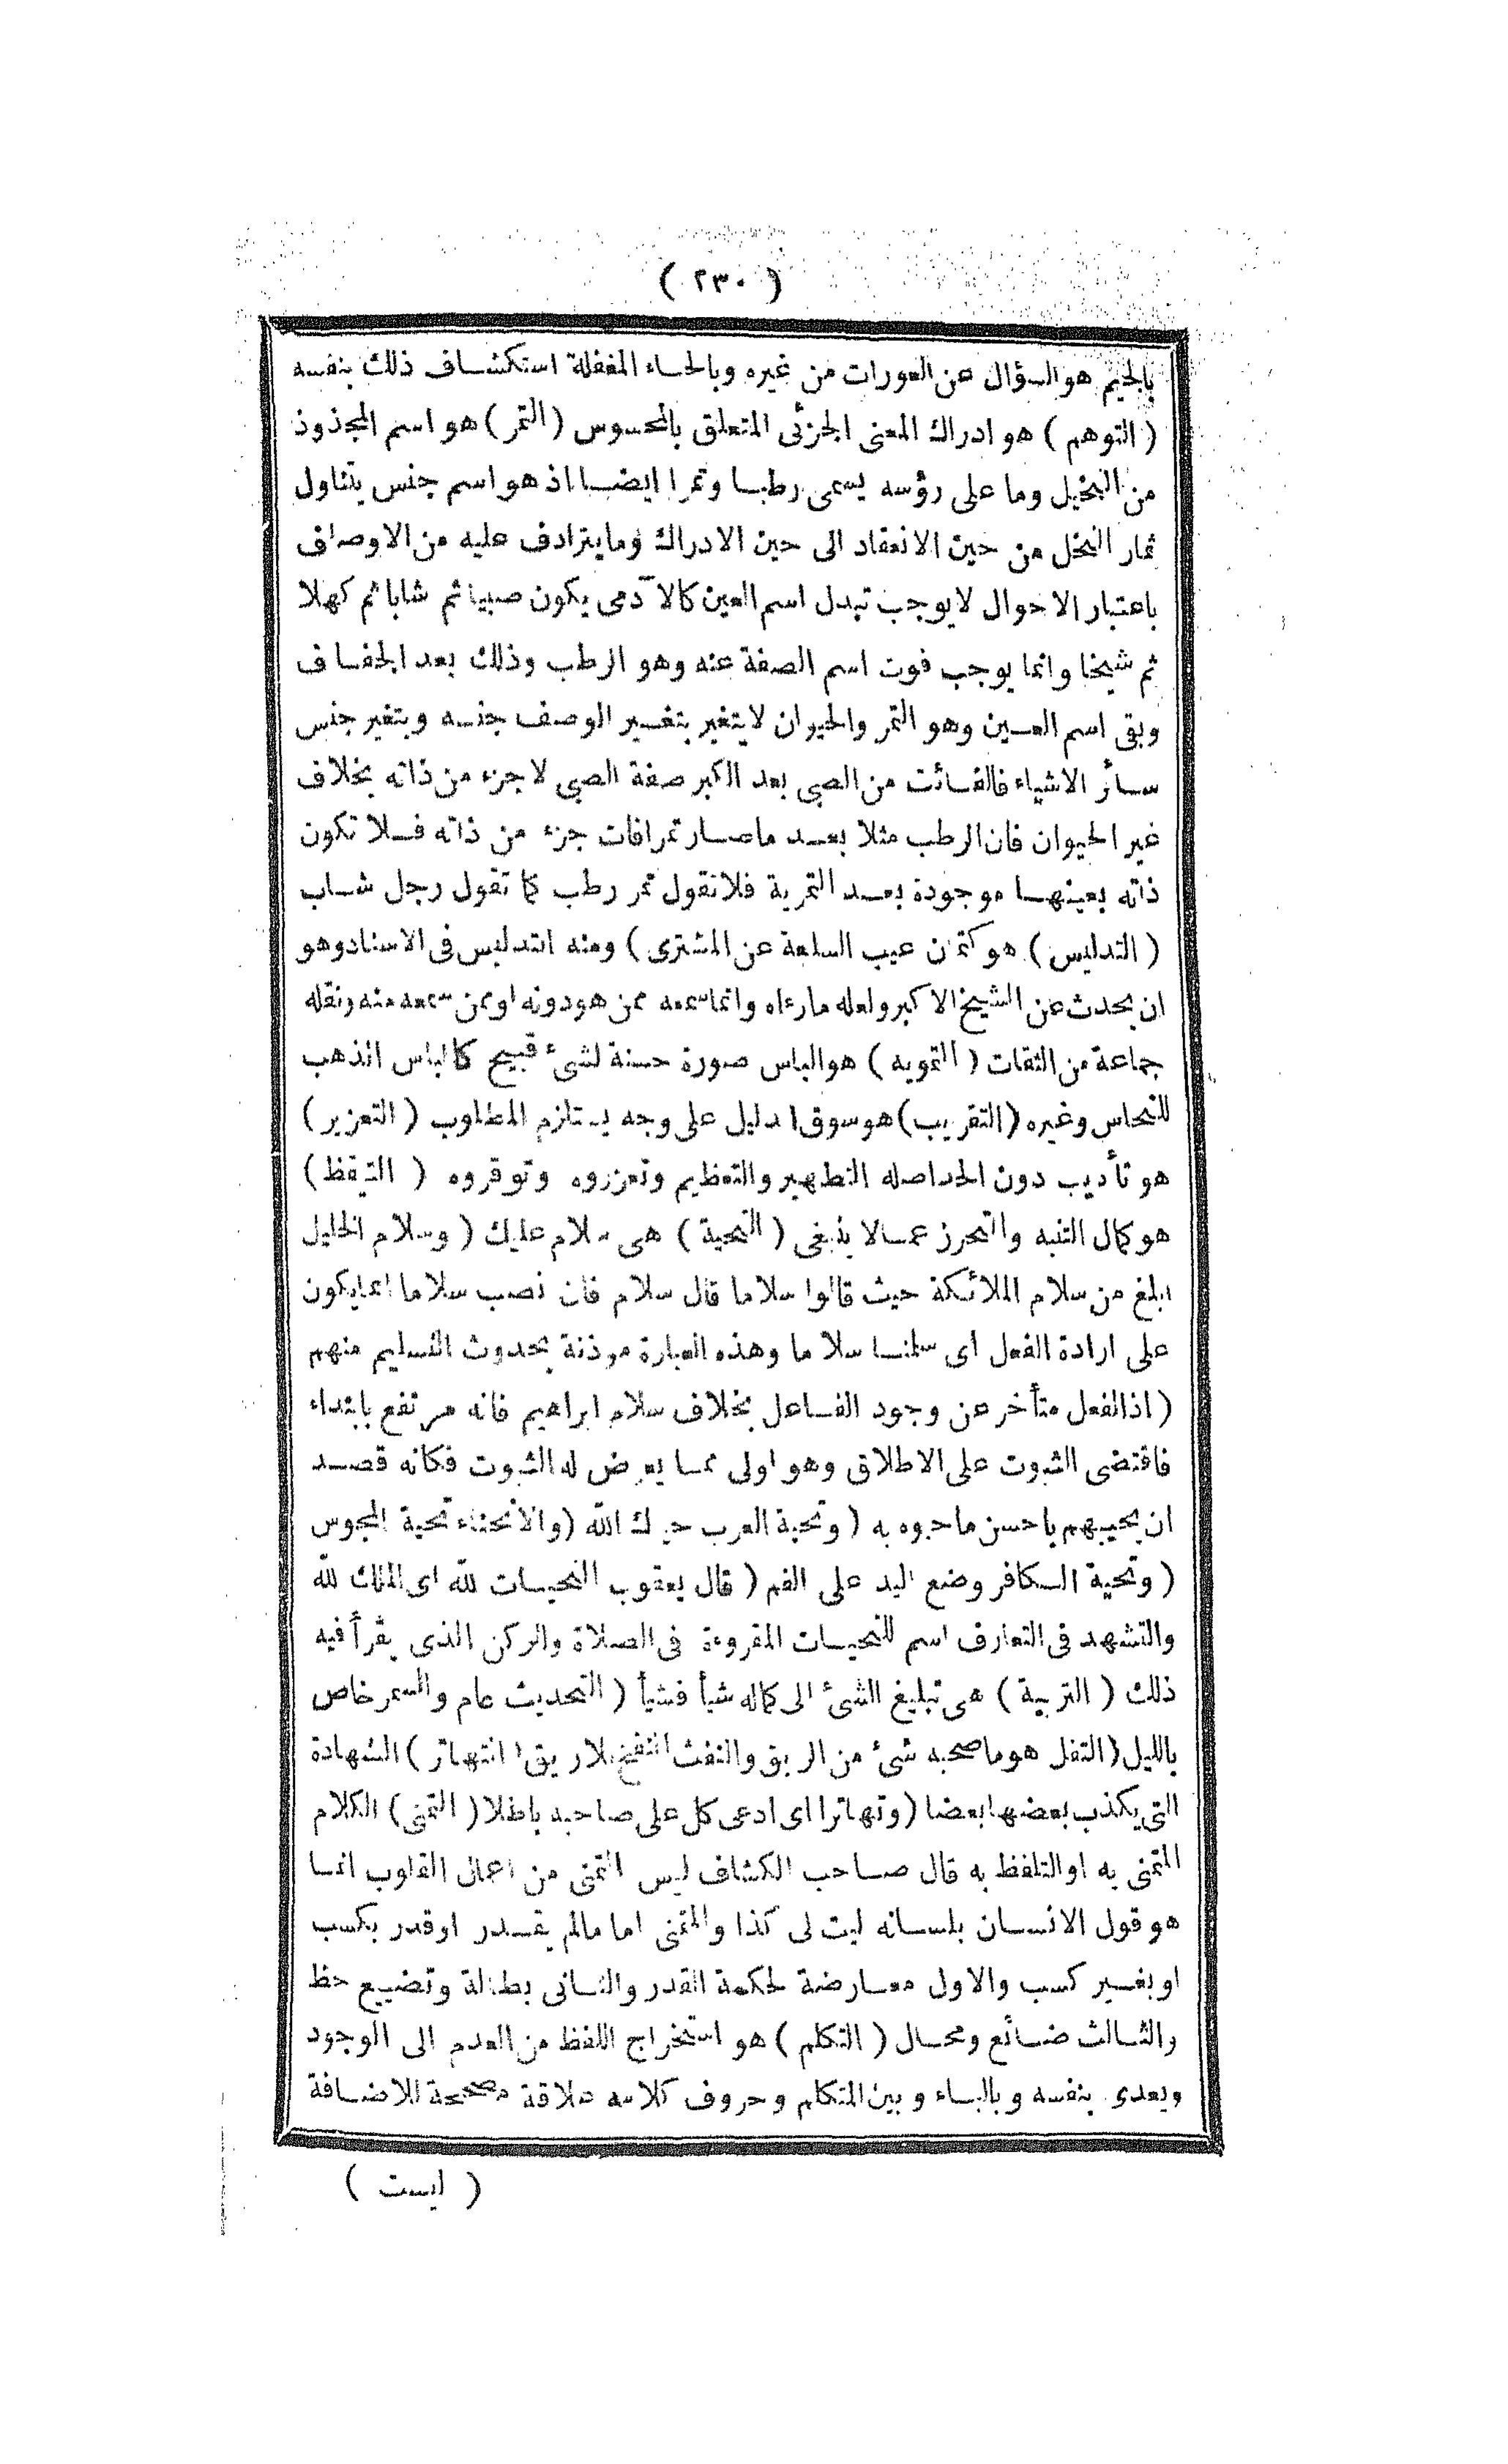 ( ٢٣٠ )
بالجيم هو السؤال عن العورات من غيره وبالحاء المغفلة استكشاف ذلك بنفسه
( التوهم ) هو ادراك المعنى الجزئى المتعلق بالمحسوس ( التمر ) هو اسم المجذوذ
من النخيل وما على رؤسه يسمى رطبا وتمرا ايضا اذ هو اسم جنس يتناول
ثمار النخل من حين الانعقاد الى حين الادراك وما يترادف عليه من الاوصاف
باعتبار الاحوال لا يوجب تبدل اسم العين كالآدمى يكون صبيا ثم شابا ثم كهلا
ثم شيخا وانما يوجب فوت اسم الصفة عنه وهو الرطب وذلك بعد الجفاف
وبقى اسم العين وهو التمر والحيوان لا يتغير بتغير الوصف جنسه ويتغير جنس
سائر الاشياء فالفائت من الصبى بعد الكبر صفة الصبى لا جزء من ذاته بخلاف
غير الحيوان فان الرطب مثلا بعد ما صار تمرا فات جزء من ذاته فلا تكون
ذاته بعينها موجودة بعد التمرية فلا نقول تمر رطب كما تقول رجل شاب
( التدليس ) هو كتمان عيب السلعة عن المشترى ) ومنه التدليس فى الاسناد وهو
ان يحدث عن الشيخ الاكبر ولعله ما رءاه وانما سمعه ممن هو دونه او ممن سمعه منه ونقله
جماعة من الثقات ( التمويه ) هو الباس صورة حسنة لشئ قبيح كالباس الذهب
للنحاس وغيره ( التقريب ) هو سوق الدليل على وجه يستلزم المطلوب ( التعزير )
هو تأديب دون الحد اصله التطهير والتعظيم وتعزروه وتوقروه ( التيقظ )
هو كمال التنبه والتحرز عما لا ينبغى ( التحية ) هى سلام عليك ( وسلام الخليل
ابلغ من سلام الملائكة حيث قالوا سلاما قال سلام فان نصب سلاما انما يكون
على ارادة الفعل اى سلمنا سلاما وهذه العبارة مؤذنة بحدوث التسليم منهم
( اذ الفعل متأخر عن وجود الفاعل بخلاف سلام ابراهيم فانه مرتفع بابتداء
فاقتضى الثبوت على الاطلاق وهو اولى مما يعرض له الثبوت فكانه قصد
ان يحييهم باحسن ما حيوه به ( وتحية العرب حياك الله ( والانحناء تحية المجوس
( وتحية الكافر وضع اليد على الفم ( قال يعقوب التحيات لله اى الملك لله
والتشهد فى التعارف اسم للتحيات المقروءة فى الصلاة والركن الذى يقرأ فيه
ذلك ( التربية ) هى تبليغ الشئ الى كماله شيأ فشيأ ( التحديث عام والسمر خاص
بالليل ( التفل هو ما صحبه شئ من الريق والنفث النفخ بلا ريق ( التهاتر ) الشهادة
التى يكذب بعضها بعضا ( وتهاترا اى ادعى كل على صاحبه باطلا ( التمنى ) الكلام
المتمنى به او التلفظ به قال صاحب الكشاف ليس التمنى من اعمال القلوب انما
هو قول الانسان بلسانه ليت لى كذا والمتمنى اما ما لم يقدر او قدر بكسب
او بغير كسب والاول معارضة لحكمة القدر والثانى بطالة وتضييع حظ
والثالث ضائع ومحال ( التكلم ) هو استخراج اللفظ من العدم الى الوجود
ويعدى بنفسه وبالباء وبين المتكلم وحروف كلامه علاقة مصححة للاضافة
( ليست )